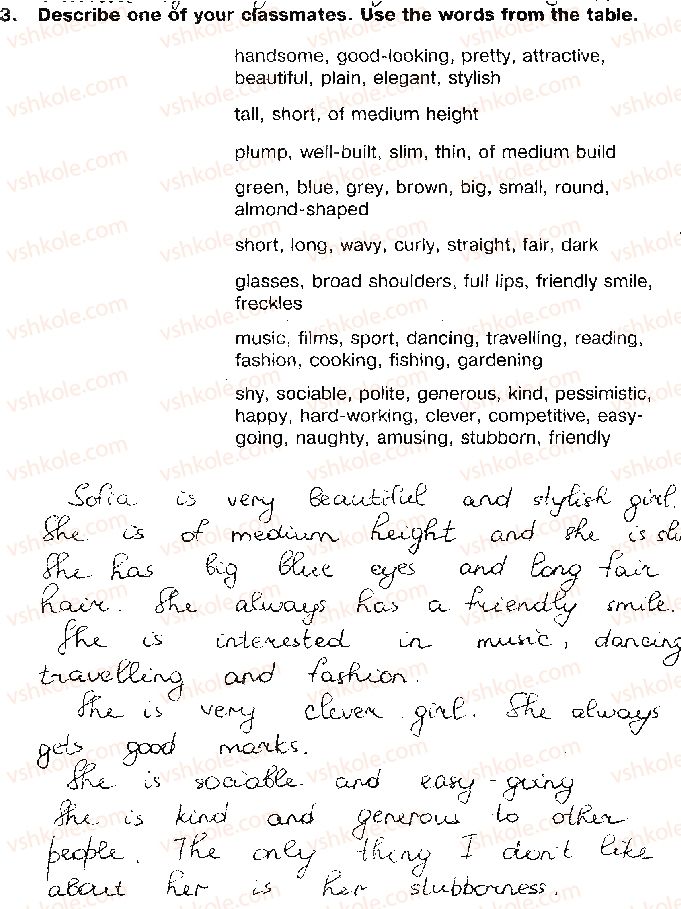 3. Describe one of your classmates. Use the words from the table.
handsome, good-looking, pretty, attractive,
beautiful, plain, elegant, stylish
tall, short, of medium height
plump, well-built, slim, thin, of medium build
green, blue, grey, brown, big, small, round,
almond-shaped
short, long, wavy, curly, straight, fair, dark
glasses, broad shoulders, full lips, friendly smile,
freckles
music, films, sport, dancing, travelling, reading,
fashion, cooking, fishing, gardening
shy, sociable, polite, generous, kind, pessimistic,
happy, hard-working, clever, competitive, easy-
going, naughty, amusing, stubborn, friendly
Sofia is very beautiful and stylish girl.
She is of medium height and she is
She has big blue eyes and long fair
hair. She always has a friendly smile.
She is interested in music, dancing
travelling and fashion.
She is very clever girl. She always
gets good marks.
She is sociable and easy-going
She is kind and generous to other
people. The only thing I don't like
about her is her stubborness.